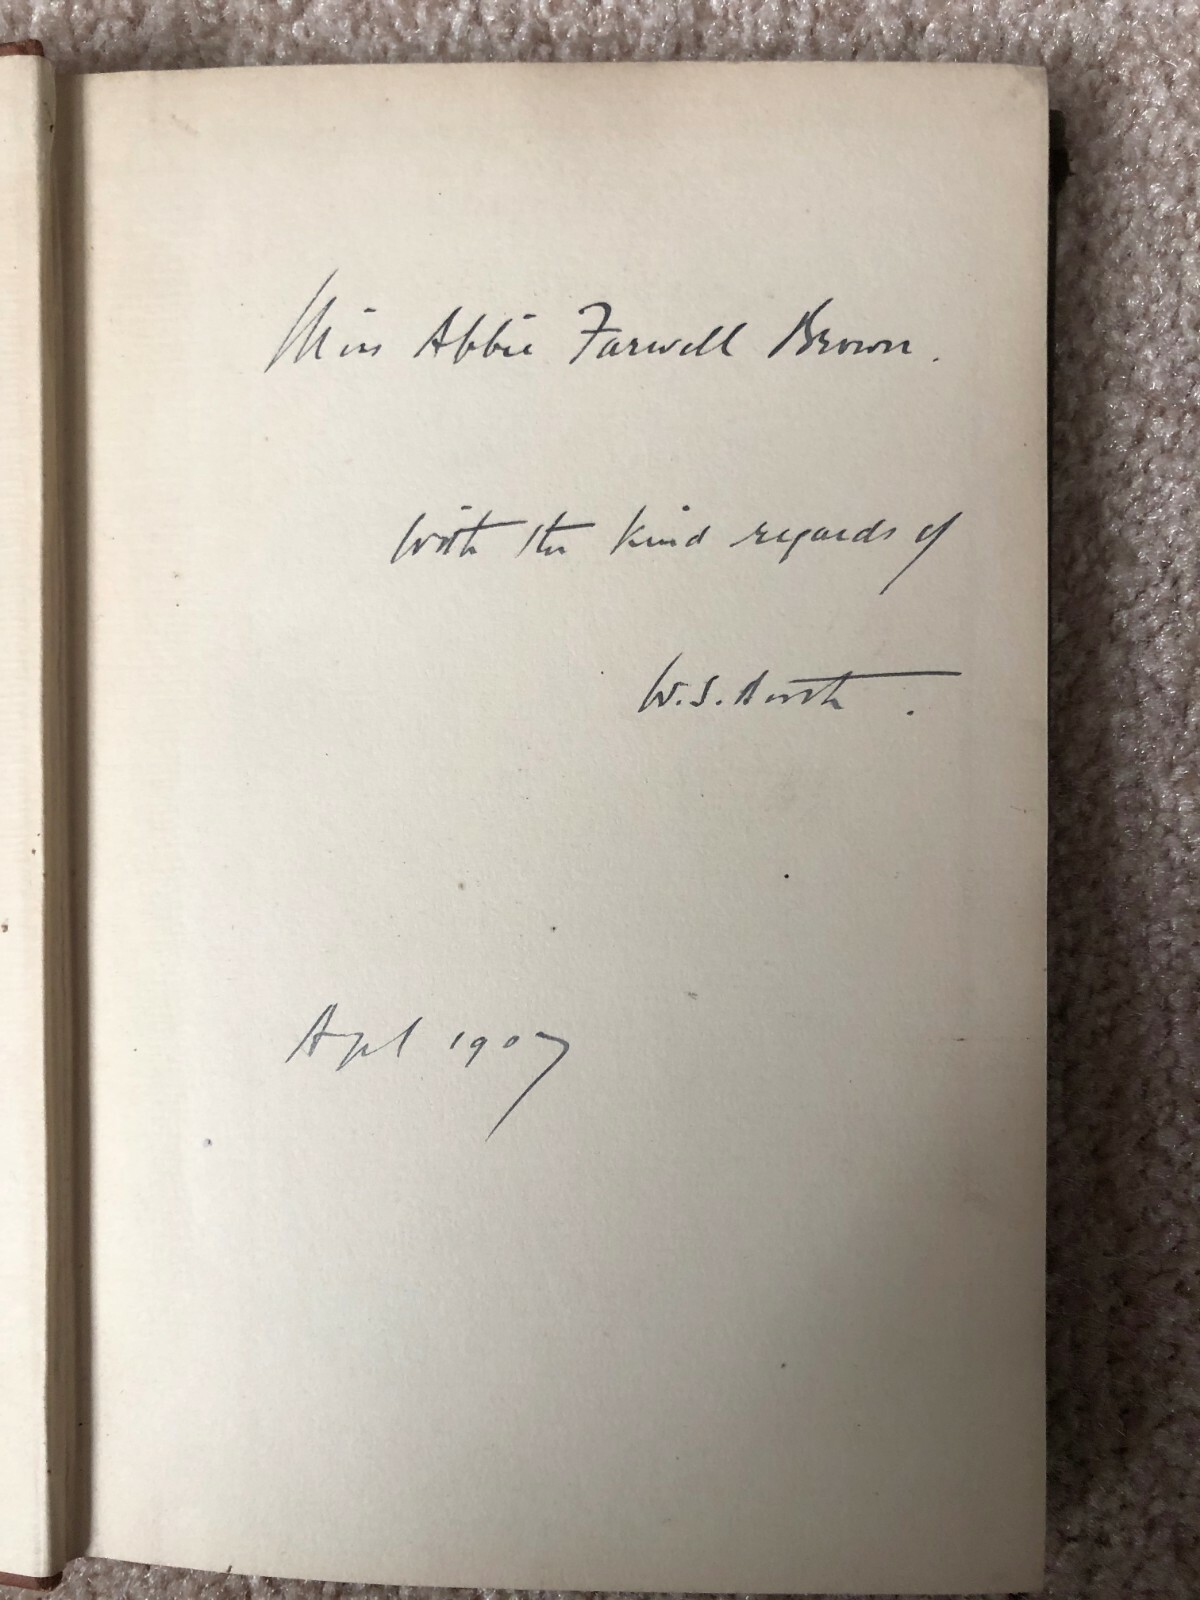 Miss Abbie Farwell Brown.
with the kind regards of
W.S.
April 1907